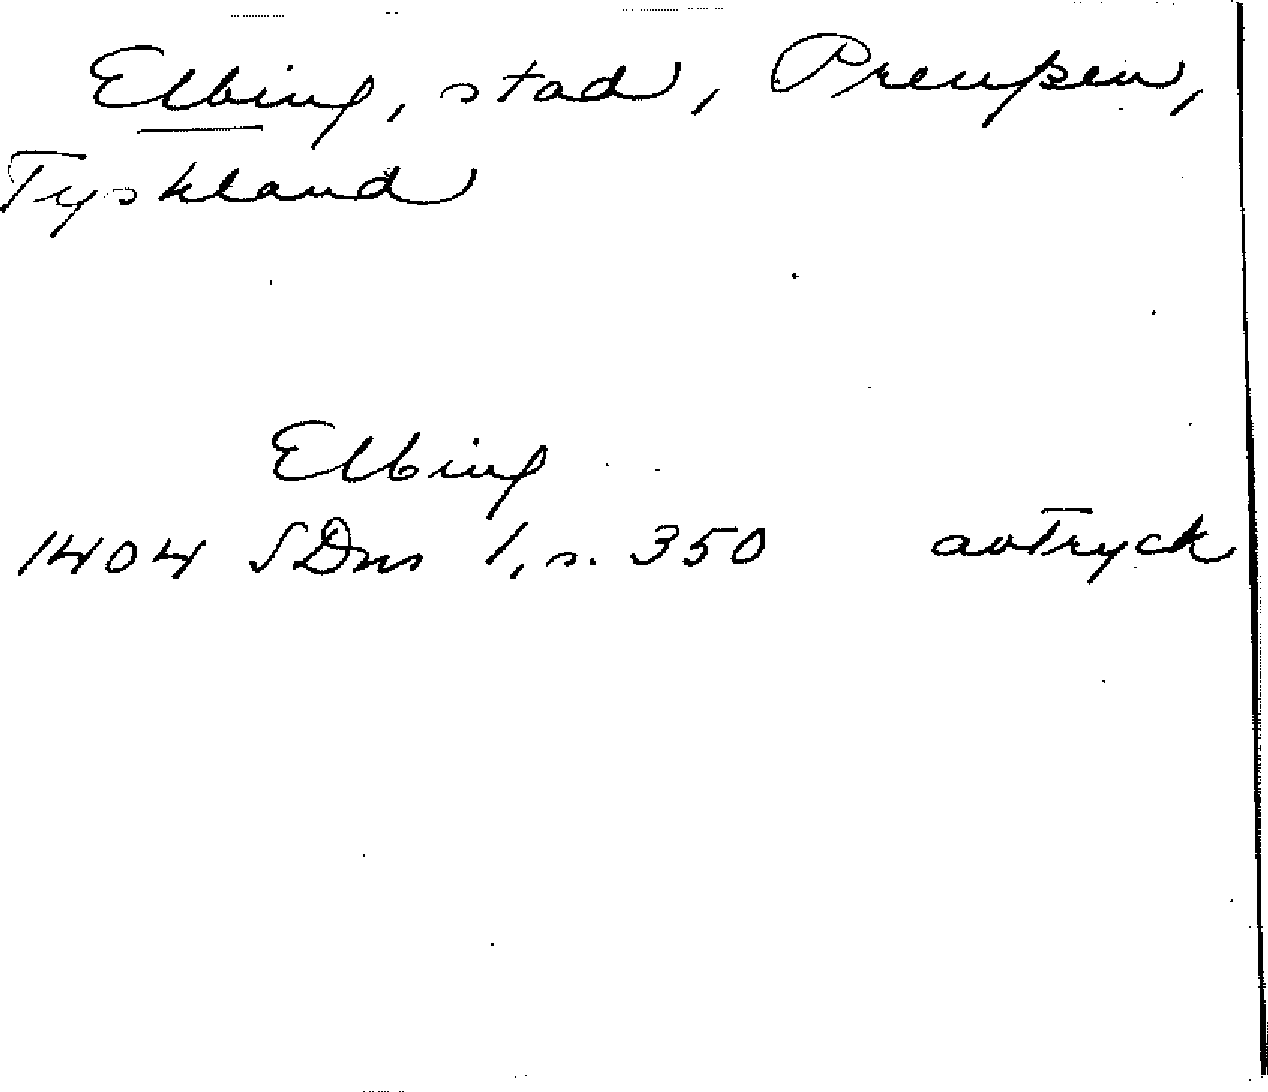 Elbing, stad, Preußen,
Tyskland
Elbing
1404 SDns 1, s. 350 avtryck